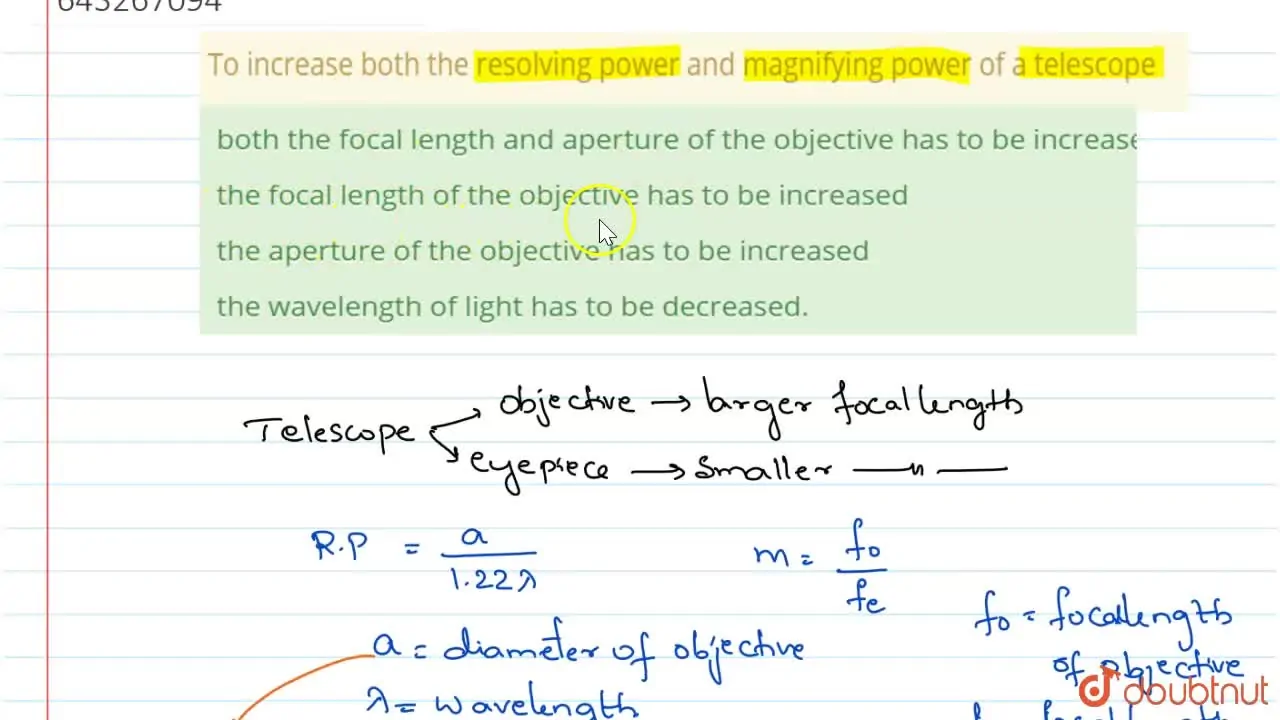 643267094
To increase both the resolving power and magnifying power of a telescope
both the focal length and aperture of the objective has to be increase
the focal length of the objective has to be increased
the aperture of the objective has to be increased
the wavelength of light has to be decreased.
Telescope
objective → larger focal length
eyepiece → smaller —— " ——
R.P = a / 1.22λ
m = fo / fe
a = diameter of objective
λ = wavelength
fo = focal length
of objective
doubtnut